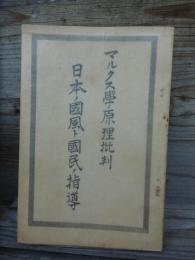 マルクス學ノ原理批判
日本ノ國風ト國民ノ指導